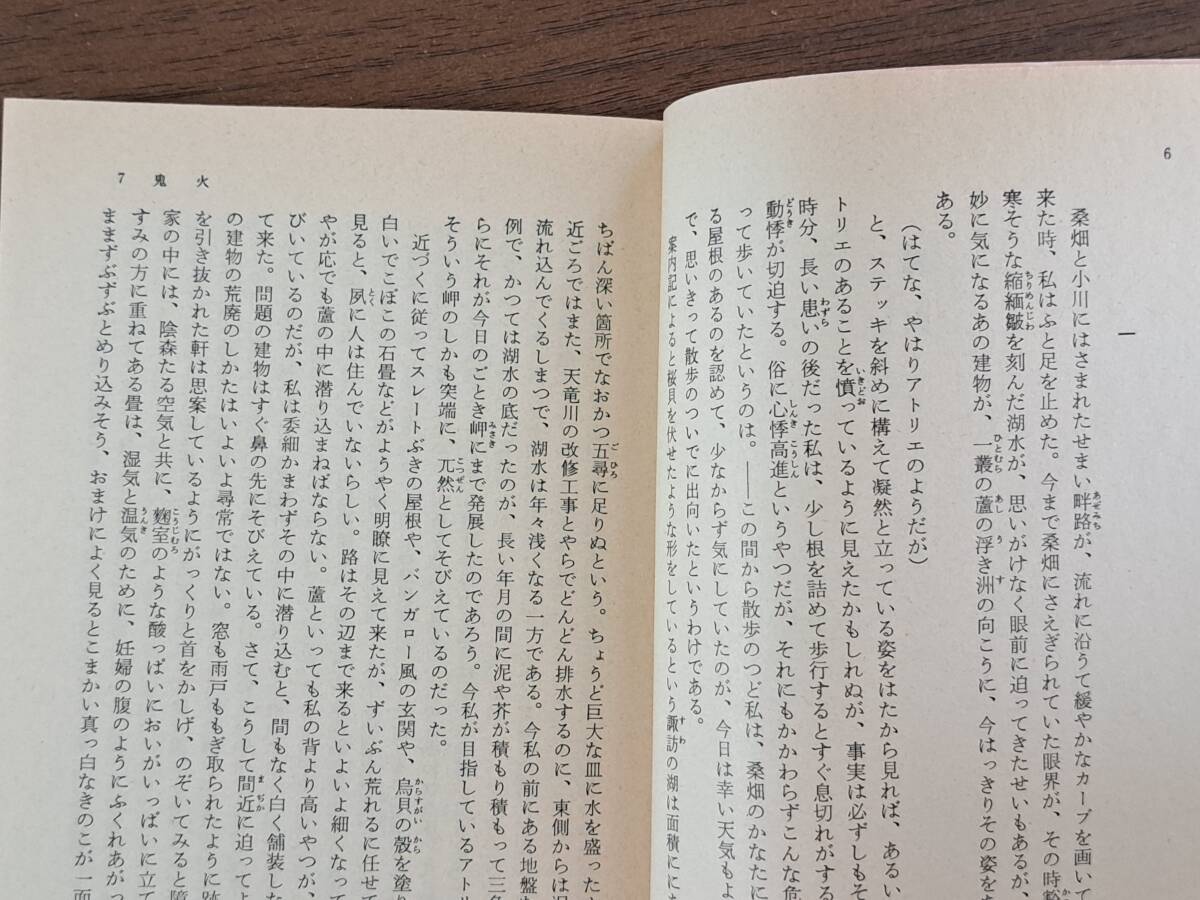 6
一
桑畑と小川にはさまれたせまい畔路が、流れに沿うて緩やかなカーブを画いて
来た時、私はふと足を止めた。今まで桑畑にさえぎられていた眼界が、その時
寒そうな縮緬皺を刻んだ湖水が、思いがけなく眼前に迫ってきたせいもあるが、
妙に気になるあの建物が、一叢の蘆の浮き洲の向こうに、今はっきりその姿を
ある。
(はてな、やはりアトリエのようだが)
と、ステッキを斜めに構えて凝然と立っている姿をはたから見れば、あるい
トリエのあることを憤っているように見えたかもしれぬが、事実は必ずしもそ
時分、長い患いの後だった私は、少し根を詰めて歩行するとすぐ息切れがする
動悸が切迫する。俗に心悸高進というやつだが、それにもかかわらずこんな危
って歩いていたというのは。――この間から散歩のつど私は、桑畑のかなたに
る屋根のあるのを認めて、少なからず気にしていたのが、今日は幸い天気もよ
で、思いきって散歩のついでに出向いたというわけである。
案内記によると桜貝を伏せたような形をしているという諏訪の湖は面積に
7 鬼火
ちばん深い箇所でなおかつ五尋に足りぬという。ちょうど巨大な皿に水を盛った
近ごろではまた、天竜川の改修工事とやらでどんどん排水するのに、東側からは
流れ込んでくるしまつで、湖水は年々浅くなる一方である。今私の前にある地盤
例で、かつては湖水の底だったのが、長い年月の間に泥や芥が積もり積もって三角
らにそれが今日のごとき岬にまで発展したのであろう。今私が目指しているアト
そういう岬のしかも突端に、兀然としてそびえているのだった。
近づくに従ってスレートぶきの屋根や、バンガロー風の玄関や、烏貝の殻を塗り
白いでこぼこの石畳などがようやく明瞭に見えて来たが、ずいぶん荒れるに任せて
見ると、夙に人は住んでいないらしい。路はその辺まで来るといよいよ細くなって
やが応でも蘆の中に潜り込まねばならない。蘆といっても私の背より高いやつが、
びいているのだが、私は委細かまわずその中に潜り込むと、間もなく白く舗装した
て来た。問題の建物はすぐ鼻の先にそびえている。さて、こうして間近に迫ってよ
の建物の荒廃のしかたはいよいよ尋常ではない。窓も雨戸ももぎ取られたように跡
を引き抜かれた軒は思案しているようにがっくりと首をかしげ、のぞいてみると障
家の中には、陰森たる空気と共に、麹室のような酸っぱいにおいがいっぱいに立て
すみの方に重ねてある畳は、湿気と温気のために、妊婦の腹のようにふくれあがっ
ままずぶずぶとめり込みそう、おまけによく見るとこまかい真っ白なきのこが一面